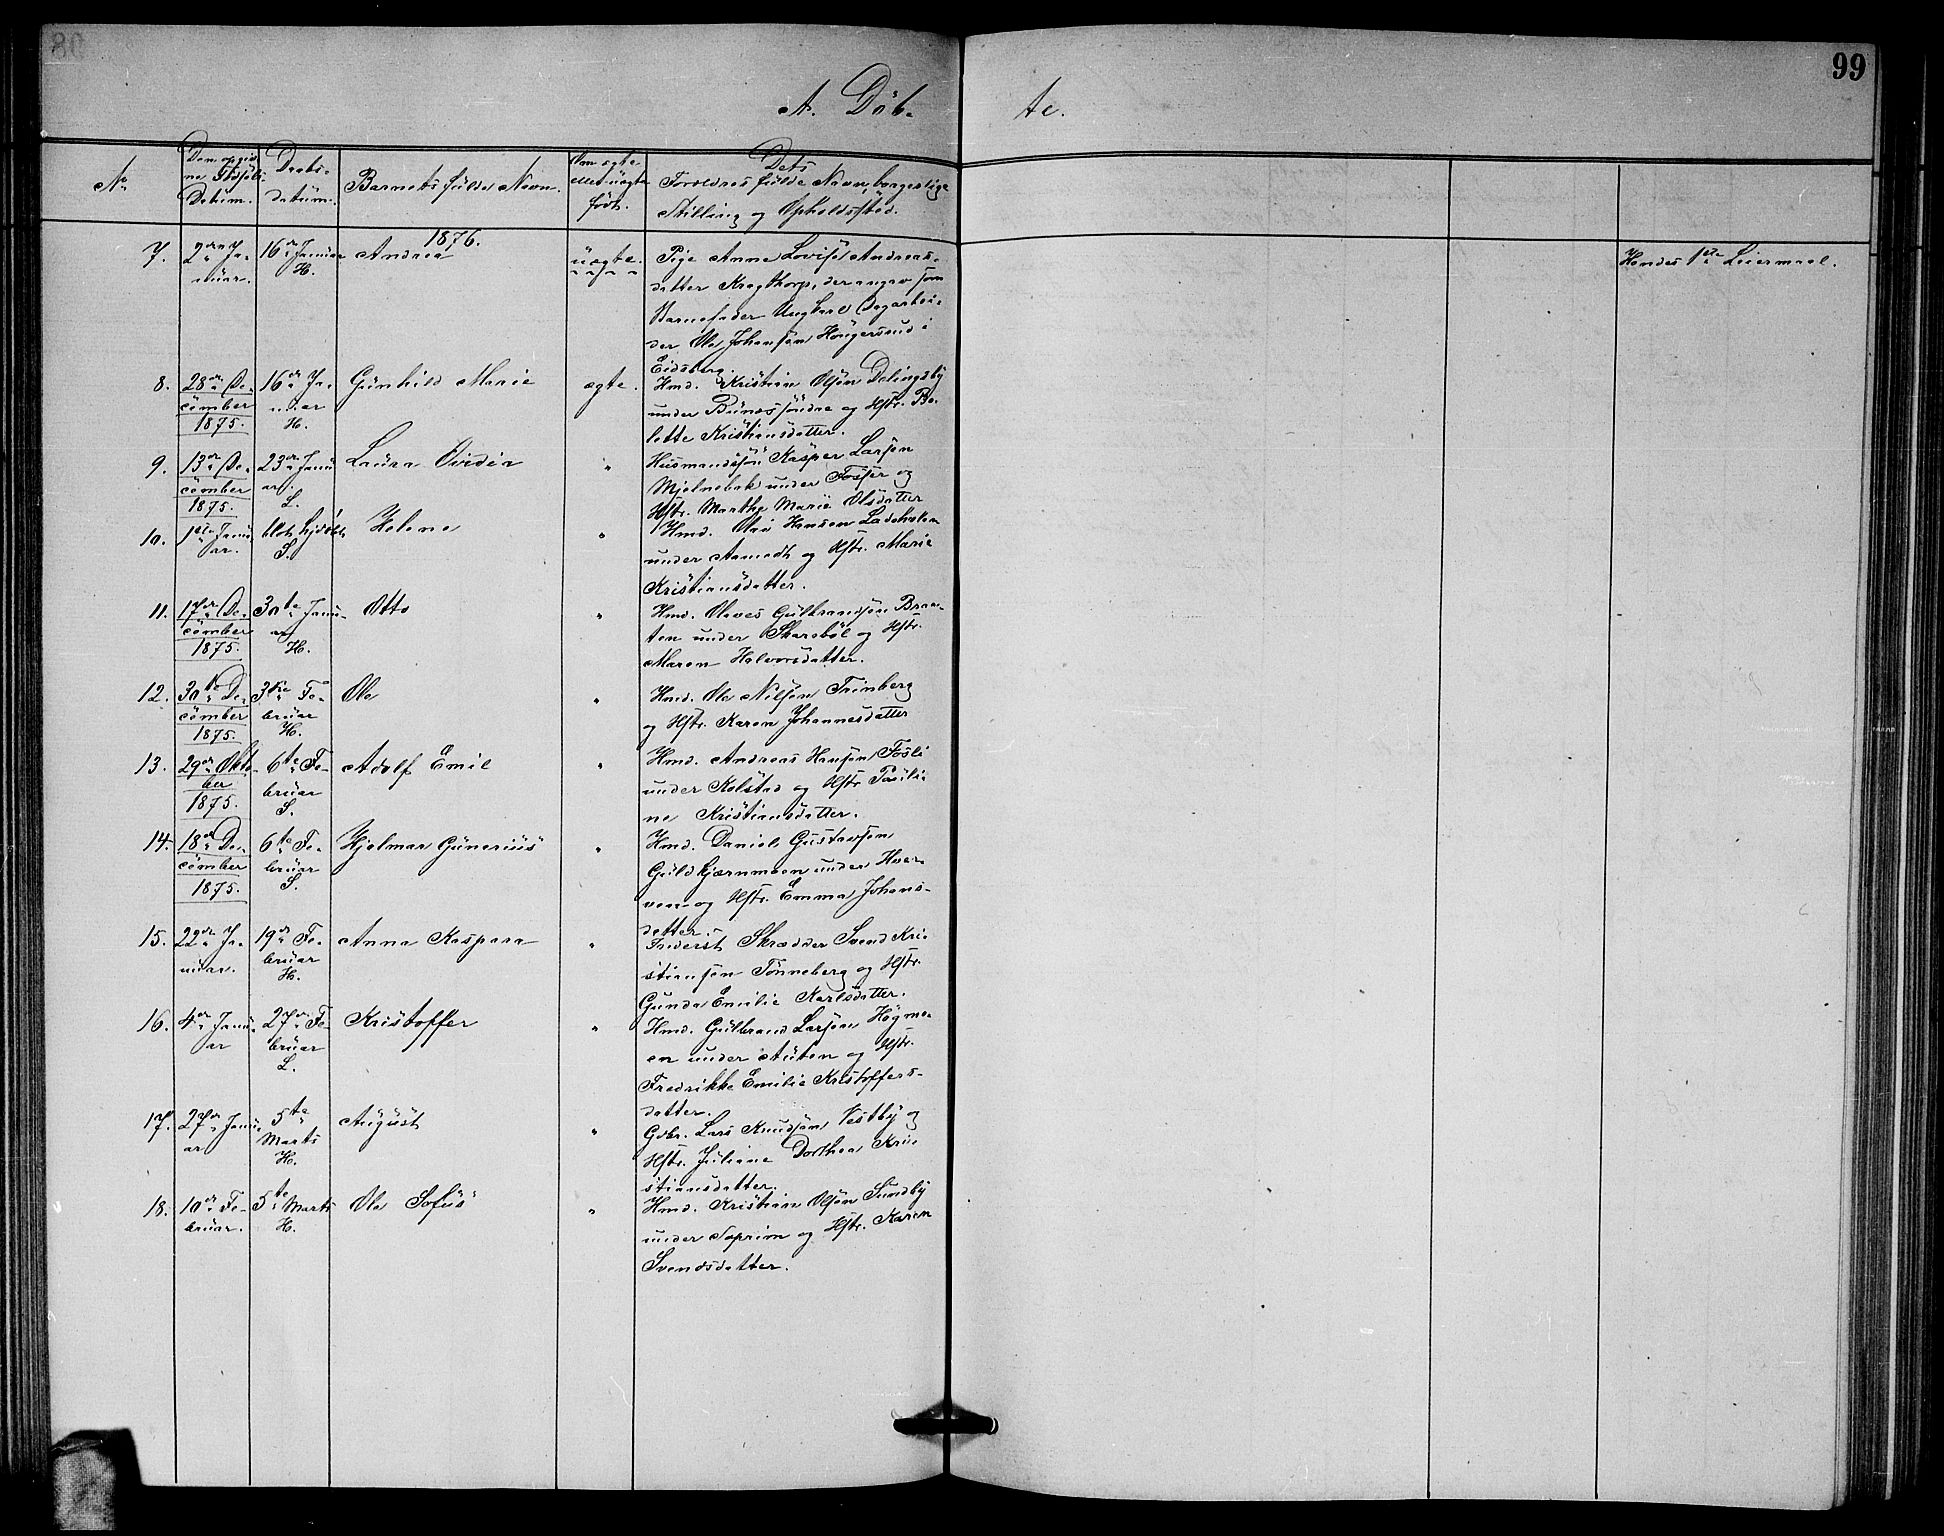 99
A. Döb-
te.
No
Den opgiv-
ne Fødsels-
Datum.
Daabs-
datum.
Barnets fulde Navn.
Om ægte
eller uægte
født.
Dets
Forældres fulde Navn, borgerlige
Stilling og Opholdssted.
1876.
7.
2den Ja-
nuar.
16de Januar
H.
Andrea
uægte.
Pige Anne Lovise Andreas-
datter Kragthorp, der angav som
Barnefader Ungkarl Dagarbei-
der Ole Johansen Höugersrud i
Eidsberg.
Hendes 1ste Leiermaal.
8.
28de De-
cember
1875.
16de Ja-
nuar
H.
Gunhild Marie
ægte.
Hmd. Kristian Olsön Delingsby
under Bunæs söndre og Hstr. Bo-
lette Kristiansdatter.
9.
13de De-
cember
1875.
23de Janu-
ar.
L.
Laura Ovidia
"
Husmandssön Kasper Larsen
Mjelnebæk under Fosser og
Hstr. Marthe Marie Olsdatter
10.
1ste Janu-
ar.
blot hjdöbt
S.
Helene
"
Hmd. Hansen Ladehaken
under Aamodt og Hstr. Marie
Kristiansdatter.
11.
17de De-
cember
1875.
30te Janu-
ar
H.
Otto
"
Hmd. Olaves Gulbrandsön Braa-
ten under Skaresböl og Hstr.
Maren Halvorsdatter.
12.
30te De-
cember
1875.
3die Fe-
bruar
H.
Ole
"
Hmd. Ole Nilsen Trinberg
og Hstr. Karen Johannesdatter
13.
29de Okto-
ber
1875.
6te Fe-
bruar
S.
Adolf Emil
"
Hmd. Andreas Hansen Fosli
under Kolstad og Hstr. Pauli-
ne Kristiansdatter.
14.
18de De-
cember
1875.
6te Fe-
bruar
S.
Hjelmar Gunerius
"
Hmd. Daniel Gustavsen
Guldkjærnmoen under Haar-
veen og Hstr. Emma Johans-
datter.
15.
22de Ja-
nuar.
19de Fe-
bruar
H.
Anna Kaspara
"
Inderst Skrædder Svend Kri-
stiansen Tønneberg og Hstr.
Gunda Emilie Karlsdatter.
16.
4de Janu-
ar
27de Fe-
bruar
L.
Kristoffer
"
Hmd. Gulbrand Larsen Högmo-
en under Auten og Hstr.
Fredrikke Emilie Kristoffers-
datter.
17.
27de Janu-
ar
5te
Marts
H.
August
"
Gbr. Lars Knudsön Vestby og
Hstr. Juliane Dorthea Kri-
stiansdatter.
18.
10de Fe-
bruar.
5te Marts
H.
Ole Sofus
"
Hmd. Kristian Olsön Sundby
under Soprim og Hstr. Karen
Svendsdatter.